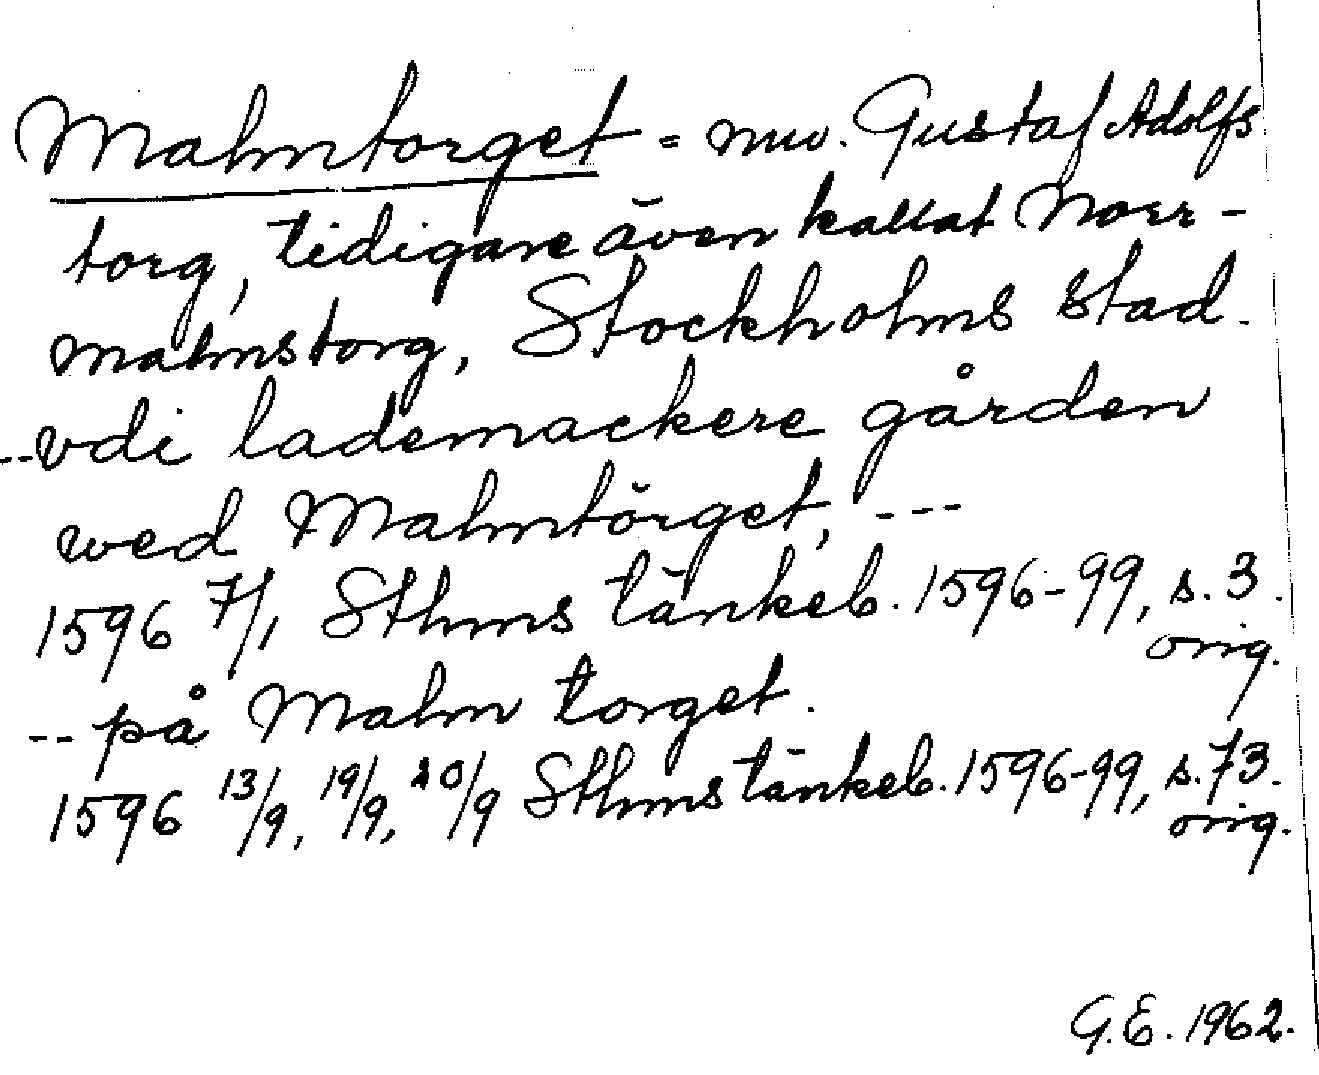 Malmtorget = nuv. Gustaf Adolfs
torg, tidigare även kallat Norr-
malmstorg, Stockholms stad.
--vdi lademackere gården
wed Malmtörget, ---
1596 7/1 Sthms tänkeb. 1596-99, s. 3.
orig.
-- på Malm torget.
1596 13/9, 19/9, 20/9 Sthms tänkeb. 1596-99, s. 73.
orig.
G.E. 1962.